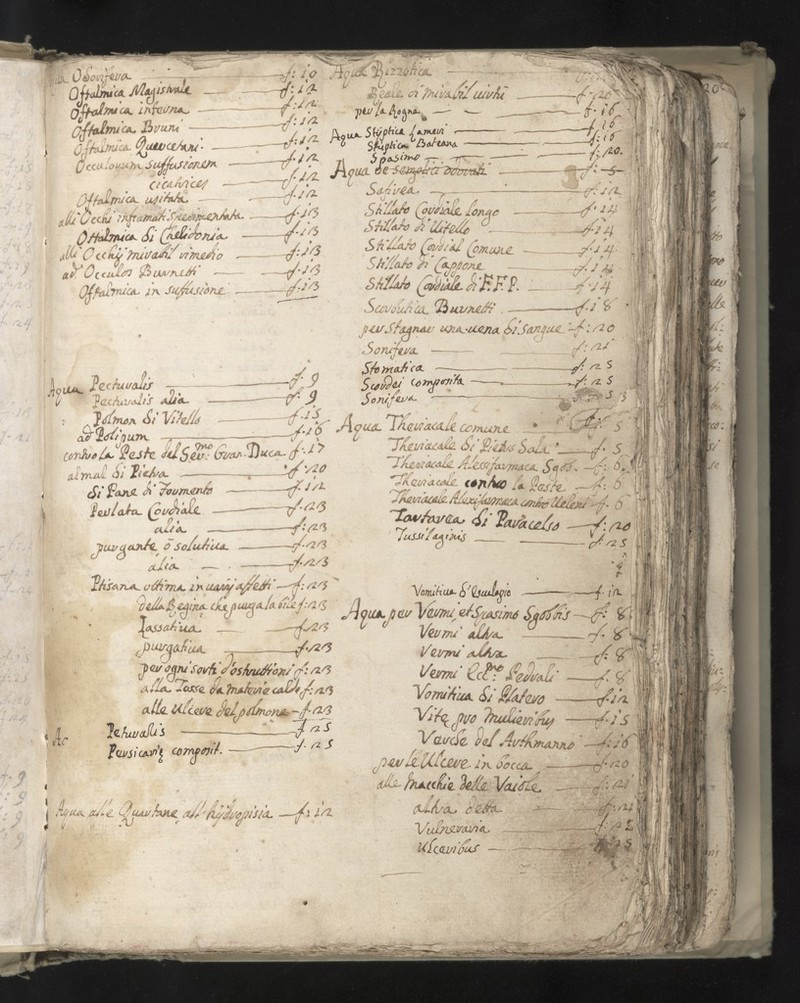 Odorifera f: 10
Oftalmica Magistrale f: 12
Oftalmica interna f: 12
Oftalmica Bruni f: 12
Oftalmica Quercetani f: 12
Occulorum Suffusionem f: 12
cicatrices f: 12
Oftalmica usitata f: 12
alli Occhi infiamati Sperimentata f: 13
Ottalmica di Chelidonia f: 13
alli Occhij mirabil rimedio f: 13
ad Occulos Burnetti f: 13
Oftalmica in suffusione f: 13
Aqua Pectoralis f. 9
Pectoralis alia f: 9
Polmon di Vitello f: 15
ad Polipum f: 16
contro la Peste del Ser:mo Gran.Duca f: 17
al mal di Pietra f: 20
di Pane di Formento f: 12
Perlata Cordiale f: 23
alia f: 23
purgante ò solutiva f: 23
alia f: 23
Ptisana ottima in varij affetti f: 23
della Regina che purga la bile f: 23
Lassativa f: 23
purgativa f: 23
per ogni sorti d'ostruttioni f: 23
alla Tosse da materie calde f: 23
alle Ulcere del polmone f. 23
Petturalis f 25
Persicarię composit. f. 25
Aqua alle Quartane all' hijdropisia f: 12
Aqua Bizzotica
Reale di mirabil virtù f. 26
per la Rogna f. 16
Aqua Styptica Lameri f. 16
Stiptica Bateana f: 16
Spasimo f: 20.
Aqua de semplici f: 5
Sativea f: 12
Stillato Cordiale longo f. 14
Stillato di Vitello f. 14
Stillato Cordial Comune f. 14
Stillato di Cappone f. 14
Stillato Cordiale di F.F.P. f. 14
Scorbutica Burnetti f. 18
per Stagnar una vena di Sangue f: 20
Sonifera f: 21
Stomatica f: 25
Scordei composita f: 25
Sonifera
Aqua Theriacale comune f: 5
Theriacale di Pietro Sala f. 5
Theriacale Alessifarmaca Sgob. f: 6
Theriacale contro la Peste f: 6
Theriacale Alexifarmaca contro Veleni f. 6
Tartarea di Paracelso f: 20
Tussilaginis f: 25
Vomitiva d'Esculapio f. 12
Aqua per Vermi, et Spasimo Sgobbis f: 8
Vermi altra f. 8
Vermi altra f: 8
Vermi Ecc:mo Pedrali f. 8
Vomitiva di Platero f. 12
Vite pro mulieribus f. 15
Verde del Arthmanno f: 16
per le Ulcere in bocca f. 20
alle Macchie delle Vaiole f: 21
altra detta f: 21
Vulneraria
Ulceribus